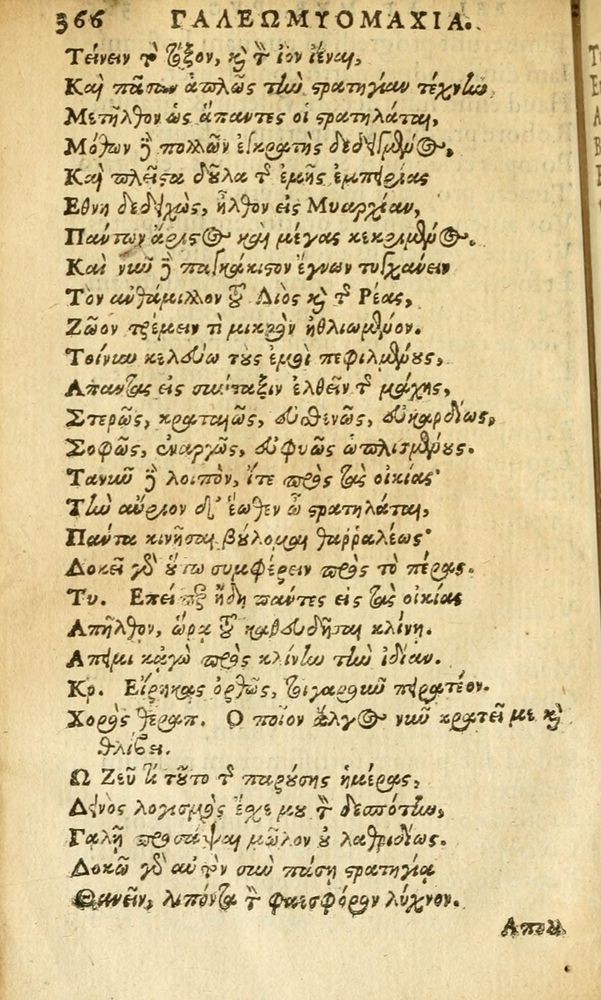 366 ΓΑΛΕΩΜΥΟΜΑΧΙΑ.
Τείνειν τὸ τόξον, καὶ τὸν ἰὸν ἰέναι,
Καὶ πᾶσαν ἁπλῶς τὴν στρατηγίαν τέχνην
Μετῆλθον ὡς ἅπαντες οἱ στρατηλάται,
Μόθων δὲ πολλῶν ἐγκρατὴς δεδειγμένος,
Καὶ πλεῖστα δοῦλα τῆς ἐμῆς ἐμπειρίας
Εθνη δεδειχὼς, ἦλθον εἰς Μυαρχίαν,
Πάντων ἄριστος καὶ μέγας κεκριμένος.
Καὶ νῦν δὲ παγκάκιστον ἔγνων τυγχάνειν
Τὸν ἀνθάμιλλον τοῦ Διὸς καὶ τῆς Ρέας,
Ζῶον τρέμειν τὶ μικρὸν ἠθλιωμένον.
Τοίνυν κελεύω τοὺς ἐμοὶ πεφιλμένους,
Απαντας εἰς σύνταξιν ἐλθεῖν τῆς μάχης,
Στερῶς, κραταιῶς, εὐθενῶς, εὐκαρδίως,
Σοφῶς, ἐναργῶς, εὐφυῶς ὡπλισμένους.
Τανῦν δὲ λοιπὸν, ἴτε πρὸς τὰς οἰκίας·
Τὴν αὔριον δ' ἕωθεν ὦ στρατηλάται,
Πάντα κινῆσαι βούλομαι θαρραλέως·
Δοκεῖ γὰρ οὕτω συμφέρειν πρὸς τὸ πέρας.
Τυ. Επείπερ ἤδη πάντες εἰς τὰς οἰκίας
Απῆλθον, ὥρα τοῦ καθευδῆσαι κλίνῃ.
Απειμι κἀγὼ πρὸς κλίνην τὴν ἰδίαν.
Κρ. Εἴρηκας ὀρθῶς, τοιγαροῦν πειρατέον.
Χορὸς θεραπ. Ο ποῖον ἄλγος νῦν κρατεῖ με καὶ
θλίβει.
Ω Ζεῦ τοῦτο τῆς παρούσης ἡμέρας,
Δεινὸς λογισμὸς ἔχε μου τὸν δεσπότην,
Γαλῇ προσάψαι μῶλον οὐ λαθριδίως.
Δοκῶ γὰρ αὐτὸν σὺν πάσῃ στρατηγίᾳ
Θανεῖν, λιπόντα τὸν φαεσφόρον λύχνον.
Απου